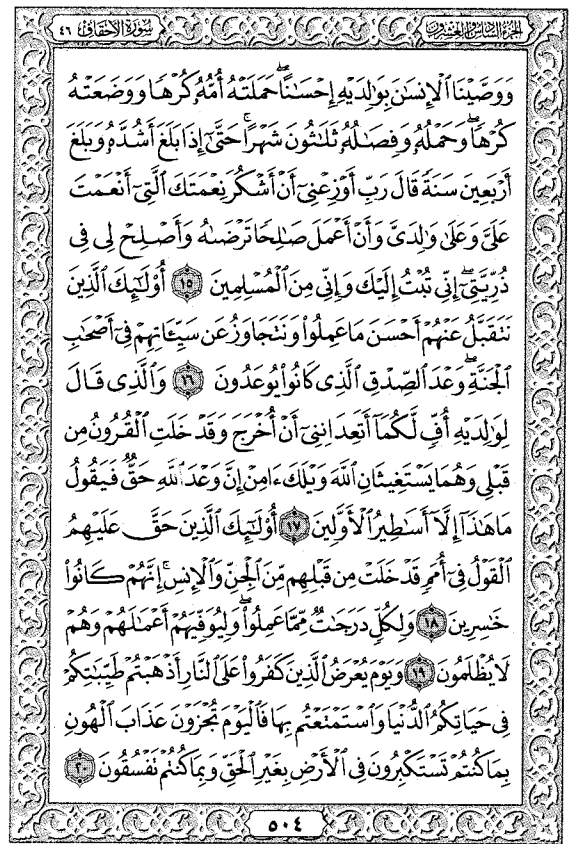 الجزء السادس والعشرون
سورة الأحقاف ٤٦
وَوَصَّيْنَا ٱلْإِنسَٰنَ بِوَٰلِدَيْهِ إِحْسَٰنًا ۖ حَمَلَتْهُ أُمُّهُۥ كُرْهًا وَوَضَعَتْهُ
كُرْهًا ۖ وَحَمْلُهُۥ وَفِصَٰلُهُۥ ثَلَٰثُونَ شَهْرًا ۚ حَتَّىٰٓ إِذَا بَلَغَ أَشُدَّهُۥ وَبَلَغَ
أَرْبَعِينَ سَنَةً قَالَ رَبِّ أَوْزِعْنِىٓ أَنْ أَشْكُرَ نِعْمَتَكَ ٱلَّتِىٓ أَنْعَمْتَ
عَلَىَّ وَعَلَىٰ وَٰلِدَىَّ وَأَنْ أَعْمَلَ صَٰلِحًا تَرْضَىٰهُ وَأَصْلِحْ لِى فِى
ذُرِّيَّتِىٓ ۖ إِنِّى تُبْتُ إِلَيْكَ وَإِنِّى مِنَ ٱلْمُسْلِمِينَ ١٥ أُو۟لَٰٓئِكَ ٱلَّذِينَ
نَتَقَبَّلُ عَنْهُمْ أَحْسَنَ مَا عَمِلُوا۟ وَنَتَجَاوَزُ عَن سَيِّـَٔاتِهِمْ فِىٓ أَصْحَٰبِ
ٱلْجَنَّةِ ۖ وَعْدَ ٱلصِّدْقِ ٱلَّذِى كَانُوا۟ يُوعَدُونَ ١٦ وَٱلَّذِى قَالَ
لِوَٰلِدَيْهِ أُفٍّ لَّكُمَآ أَتَعِدَانِنِىٓ أَنْ أُخْرَجَ وَقَدْ خَلَتِ ٱلْقُرُونُ مِن
قَبْلِى وَهُمَا يَسْتَغِيثَانِ ٱللَّهَ وَيْلَكَ ءَامِنْ إِنَّ وَعْدَ ٱللَّهِ حَقٌّ فَيَقُولُ
مَا هَٰذَآ إِلَّآ أَسَٰطِيرُ ٱلْأَوَّلِينَ ١٧ أُو۟لَٰٓئِكَ ٱلَّذِينَ حَقَّ عَلَيْهِمُ
ٱلْقَوْلُ فِىٓ أُمَمٍ قَدْ خَلَتْ مِن قَبْلِهِم مِّنَ ٱلْجِنِّ وَٱلْإِنسِ ۖ إِنَّهُمْ كَانُوا۟
خَٰسِرِينَ ١٨ وَلِكُلٍّ دَرَجَٰتٌ مِّمَّا عَمِلُوا۟ ۖ وَلِيُوَفِّيَهُمْ أَعْمَٰلَهُمْ وَهُمْ
لَا يُظْلَمُونَ ١٩ وَيَوْمَ يُعْرَضُ ٱلَّذِينَ كَفَرُوا۟ عَلَى ٱلنَّارِ أَذْهَبْتُمْ طَيِّبَٰتِكُمْ
فِى حَيَاتِكُمُ ٱلدُّنْيَا وَٱسْتَمْتَعْتُم بِهَا فَٱلْيَوْمَ تُجْزَوْنَ عَذَابَ ٱلْهُونِ
بِمَا كُنتُمْ تَسْتَكْبِرُونَ فِى ٱلْأَرْضِ بِغَيْرِ ٱلْحَقِّ وَبِمَا كُنتُمْ تَفْسُقُونَ ٢٠
٥٠٤